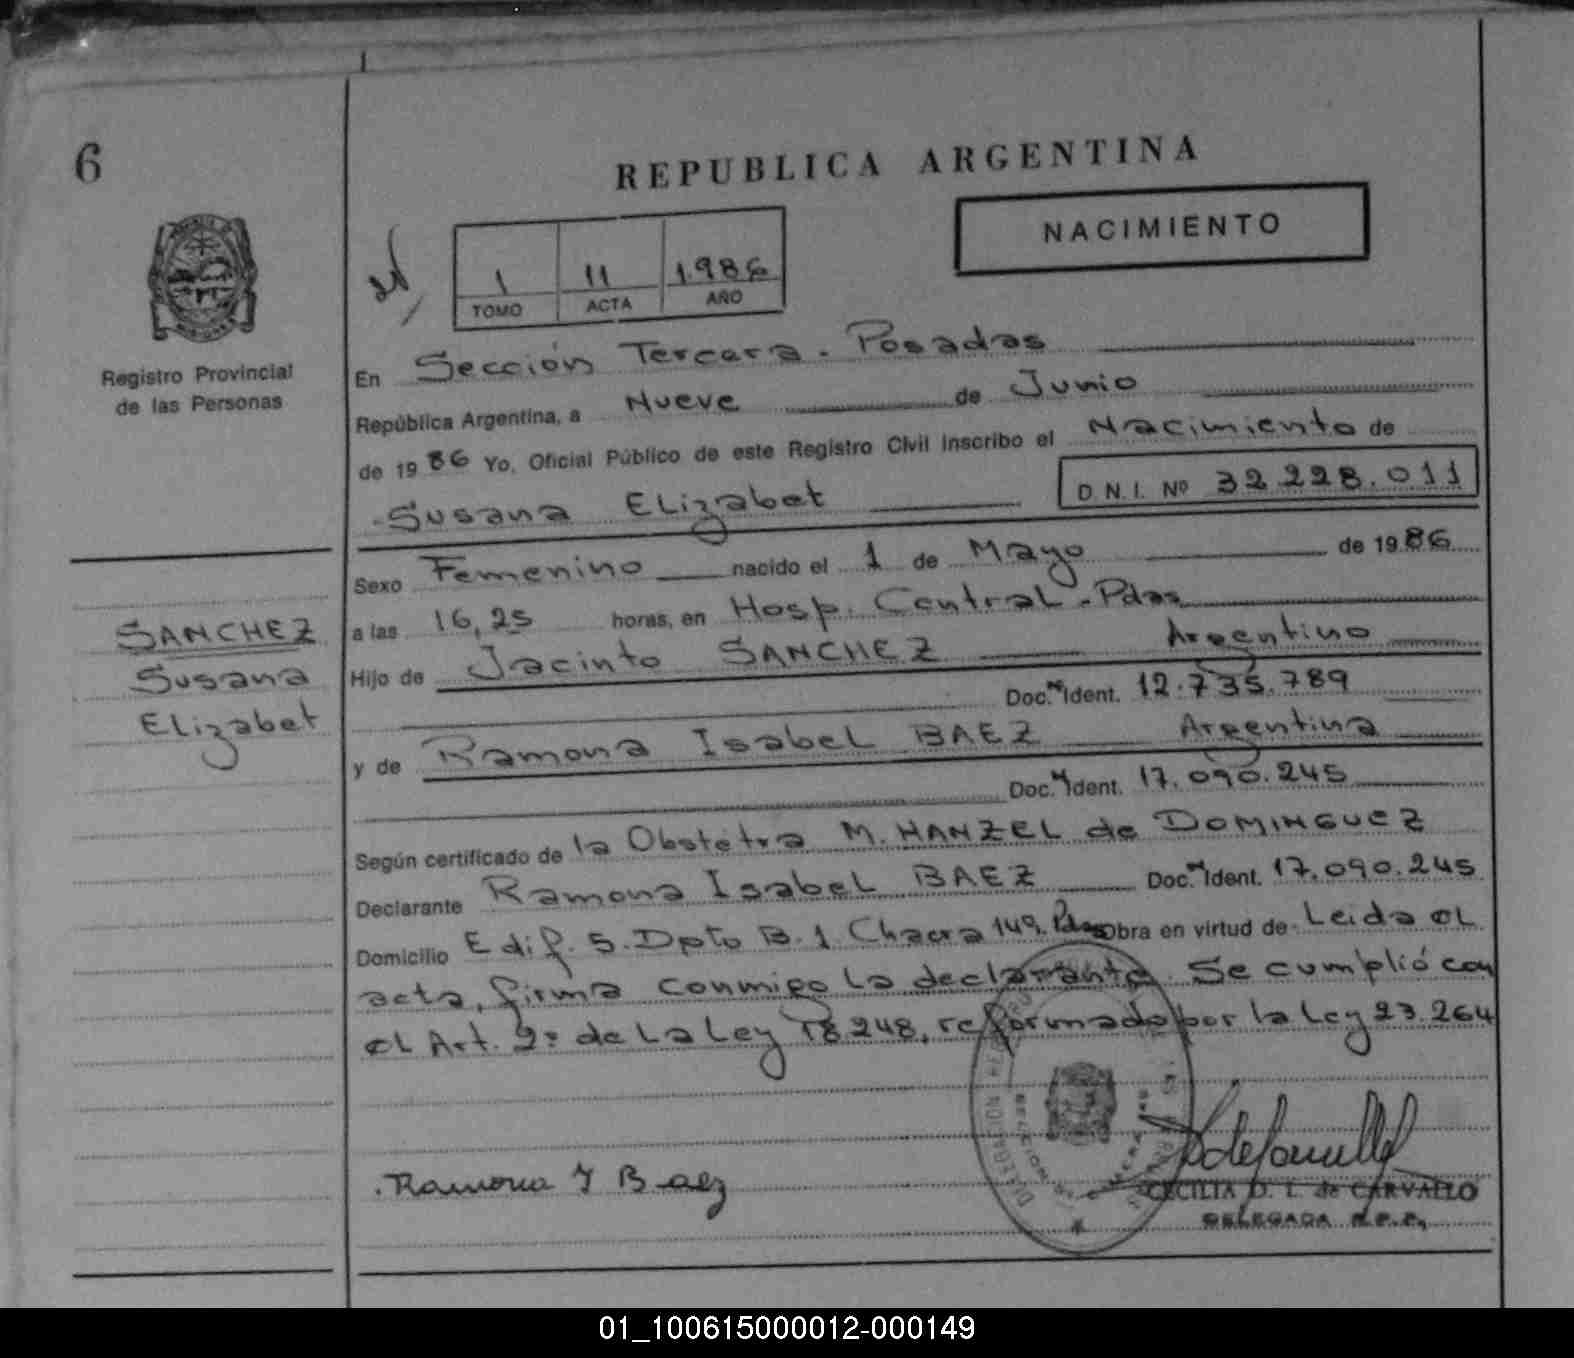 6
REPUBLICA ARGENTINA
NACIMIENTO
1 11 1.986
TOMO ACTA AÑO
Registro Provincial
de las Personas
En Sección Tercera. Posadas
República Argentina, a Nueve de Junio
de 19 86 Yo, Oficial Público de este Registro Civil inscribo el Nacimiento de
Susana Elizabet D.N.I. Nº 32.228.011
Sexo Femenino nacido el 1 de Mayo de 19 86
a las 16,25 horas, en Hosp. Central. Pdas
SANCHEZ
Susana
Elizabet
Hijo de Jacinto SANCHEZ Argentino
Doc. Ident. 12.735.789
y de Ramona Isabel BAEZ Argentina
Doc. Ident. 17.090.245
Según certificado de la Obstétra M. HANZEL de DOMINGUEZ
Declarante Ramona Isabel BAEZ Doc. Ident. 17.090.245
Domicilio Edif. 5. Dpto B. 1. Chacra 149. Pdas Obra en virtud de Leida el
acta, firma conmigo la declarante. Se cumplió con
el Art. 2º de la Ley 18.248, reformado por la Ley 23.264
Ramona I Baez
CECILIA D. L. de CARVALLO
DELEGADA R.P.P.
01_100615000012-000149